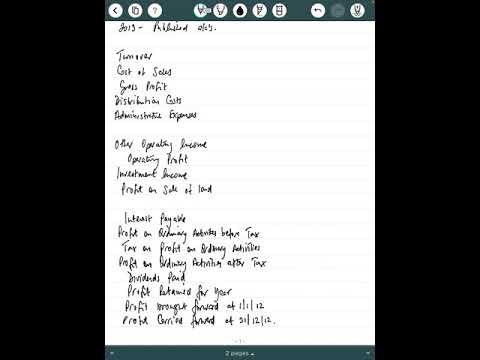 2013 - Published a/cs.
Turnover
Cost of Sales
Gross Profit
Distribution Costs
Administrative Expenses
Other Operating Income
Operating Profit
Investment Income
Profit on Sale of land
Interest Payable
Profit on Ordinary Activities before Tax
Tax on Profit on Ordinary Activities
Profit on Ordinary Activities after Tax
Dividends Paid
Profit Retained for Year
Profit Brought forward at 1/1/12
Profit Carried forward at 31/12/12.
2 pages